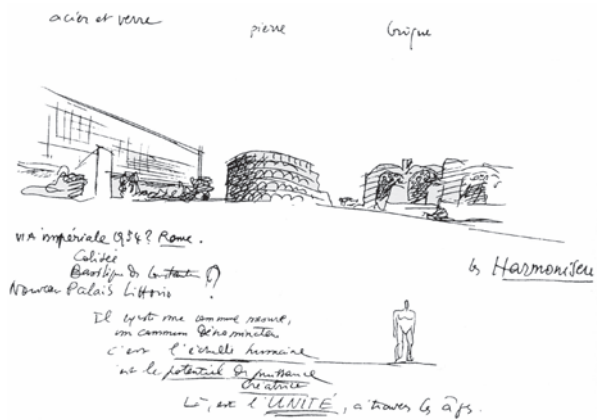 acier et verre
pierre
brique
via impériale 1934? Rome.
Colisée
Basilique de Constantin
Nouveau Palais Littorio ?
les Harmoniser
Il existe une commune mesure,
un commun dénominateur
c'est l'échelle humaine
est le potentiel de puissance
créatrice
Là, est l'UNITÉ, à travers les âges.